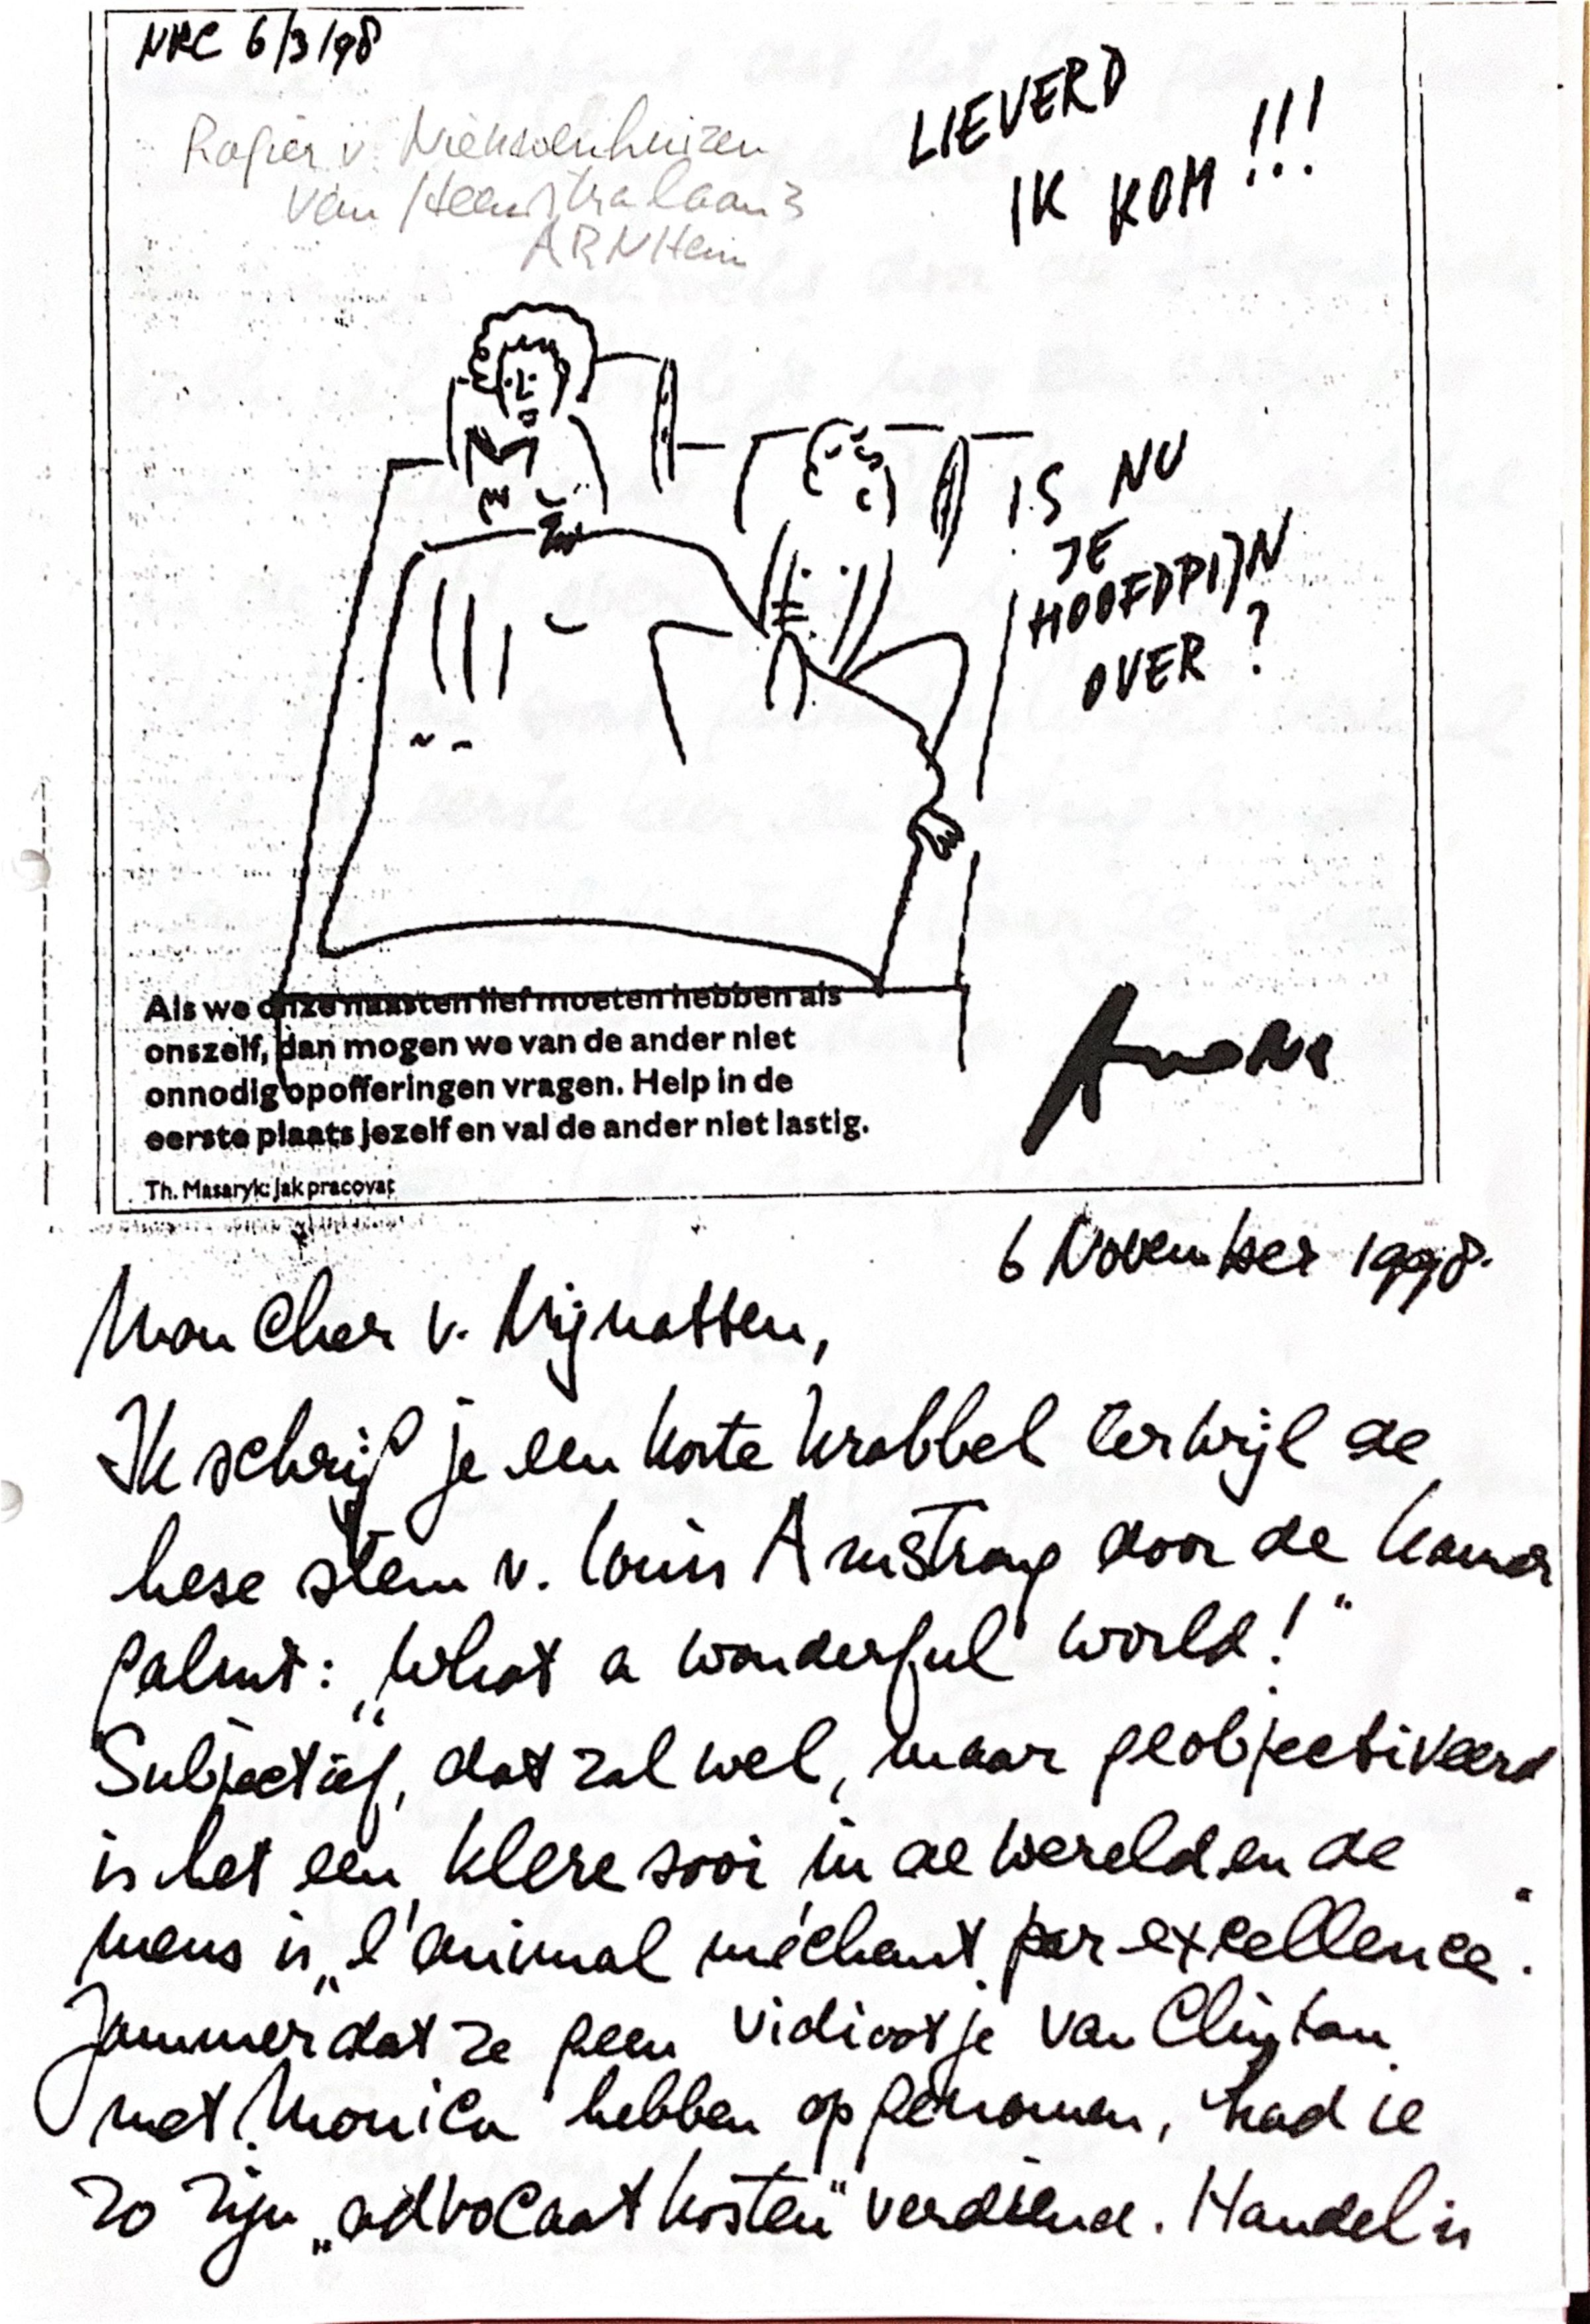 NRC 6/3/98
LIEVERD
IK KOM !!!
Rogier v. Nieuwenhuizen
van Heemstralaan 3
ARNHem
IS NU
JE
HOOFDPIJN
OVER ?
Als we onze naasten lief moeten hebben als
onszelf, dan mogen we van de ander niet
onnodig opofferingen vragen. Help in de
eerste plaats jezelf en val de ander niet lastig.
Th. Masaryk: Jak pracovat
6 November 1998.
Mon Cher v. Nijnatten,
Ik schrijf je een korte krabbel terwijl de
hese stem v. Louis Armstrong door de kamer
galmt: „What a wonderful world!"
Subjectief, dat zal wel, maar geobjectiveerd
is het een klere zooi in de wereld en de
mens is „l'animal méchant par excellence".
Jammer dat ze geen vidiootje van Clinton
met Monica hebben opgenomen, had ie
zo zijn „advocaatkosten" verdiend. Handel is